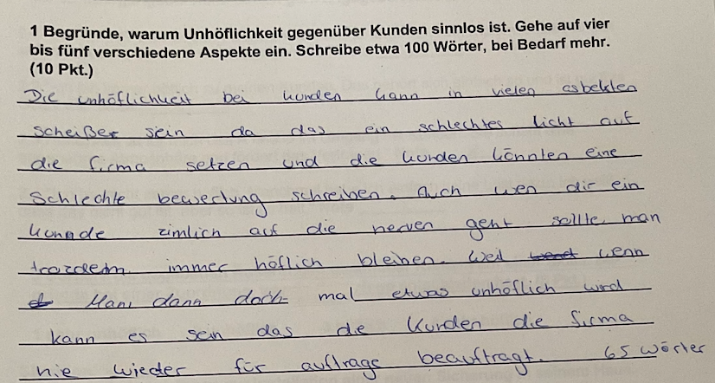 1 Begründe, warum Unhöflichkeit gegenüber Kunden sinnlos ist. Gehe auf vier
bis fünf verschiedene Aspekte ein. Schreibe etwa 100 Wörter, bei Bedarf mehr.
(10 Pkt.)
Die unhöflichkeit bei kunden kann in vielen asbekten
scheißer sein da das ein schlechtes licht auf
die firma setzen und die kunden könnten eine
Schlechte bewertung schreiben. Auch wen dir ein
kunnde zimlich auf die nerven geht sollte man
trozdem immer höflich bleiben. Weil wenn
Man dann doch mal etwas unhöflich wird
kann es sein das die Kunden die firma
nie wieder für aufträge beauftragt. 65 Wörter